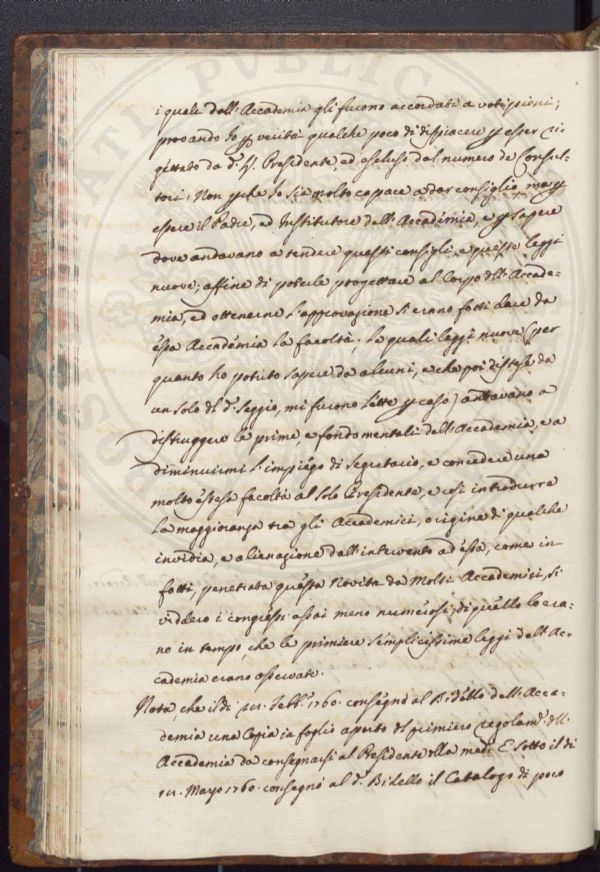 i quali dall'Accademia gli furono accordati a voti pieni;
provando Io p verità qualche poco di dispiacere p esser ri-
gettato da d.º S. Presidente, ed escluso dal numero de Consul-
tori: Non pche Io sia molto capace a dar consiglio, ma p
essere il Padre, ed Institutore dell'Accademia, e p sapere
dove andavano a tendere questi consigli, e queste leggi
nuove; affine di poterle progettare al Corpo dll'Accade-
mia, ed ottenerne l'approvazione si erano fatti dare da
essa Accadèmia la facoltà; le quali leggi nuove (per
quanto ho potuto sapere da alcuni, e che poi distese da
un solo dl d.º Seggio, mi furono lette p caso) andavano a
distruggere le prime, e fondamentali dell'Accademia, e a
diminuirmi l'impiégo di Segretario, e concedere una
molto estesa facoltà al solo Presidente, e così introdurre
la maggioranza tra gli Accademici, origine di qualche
invidia, e alienazione dall'intervento ad essa, come in
fatti, penetrata questa Novità da molti Accademici, si
viddero i congressi assai meno numerosi, di quello lo era-
no in tempo, che le primiere semplicissime leggi dell'Ac-
cademia erano osservate.
Nota, che il dì Febb.º 1760. consegnò al Bidello dell'Acca-
demia una Copia in foglio aperto dl primiero regolam.º dll'
Accademia da consegnarsi al Presidente dlla med.ª E sotto il dì
Mayo 1760. consegnò al d.º Bidello il Catalogo di poco